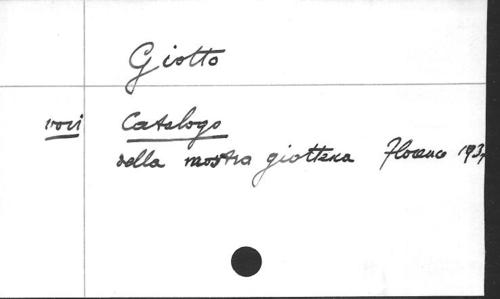 Giotto
voci Catalogo
della mostra giottesca Florence 193